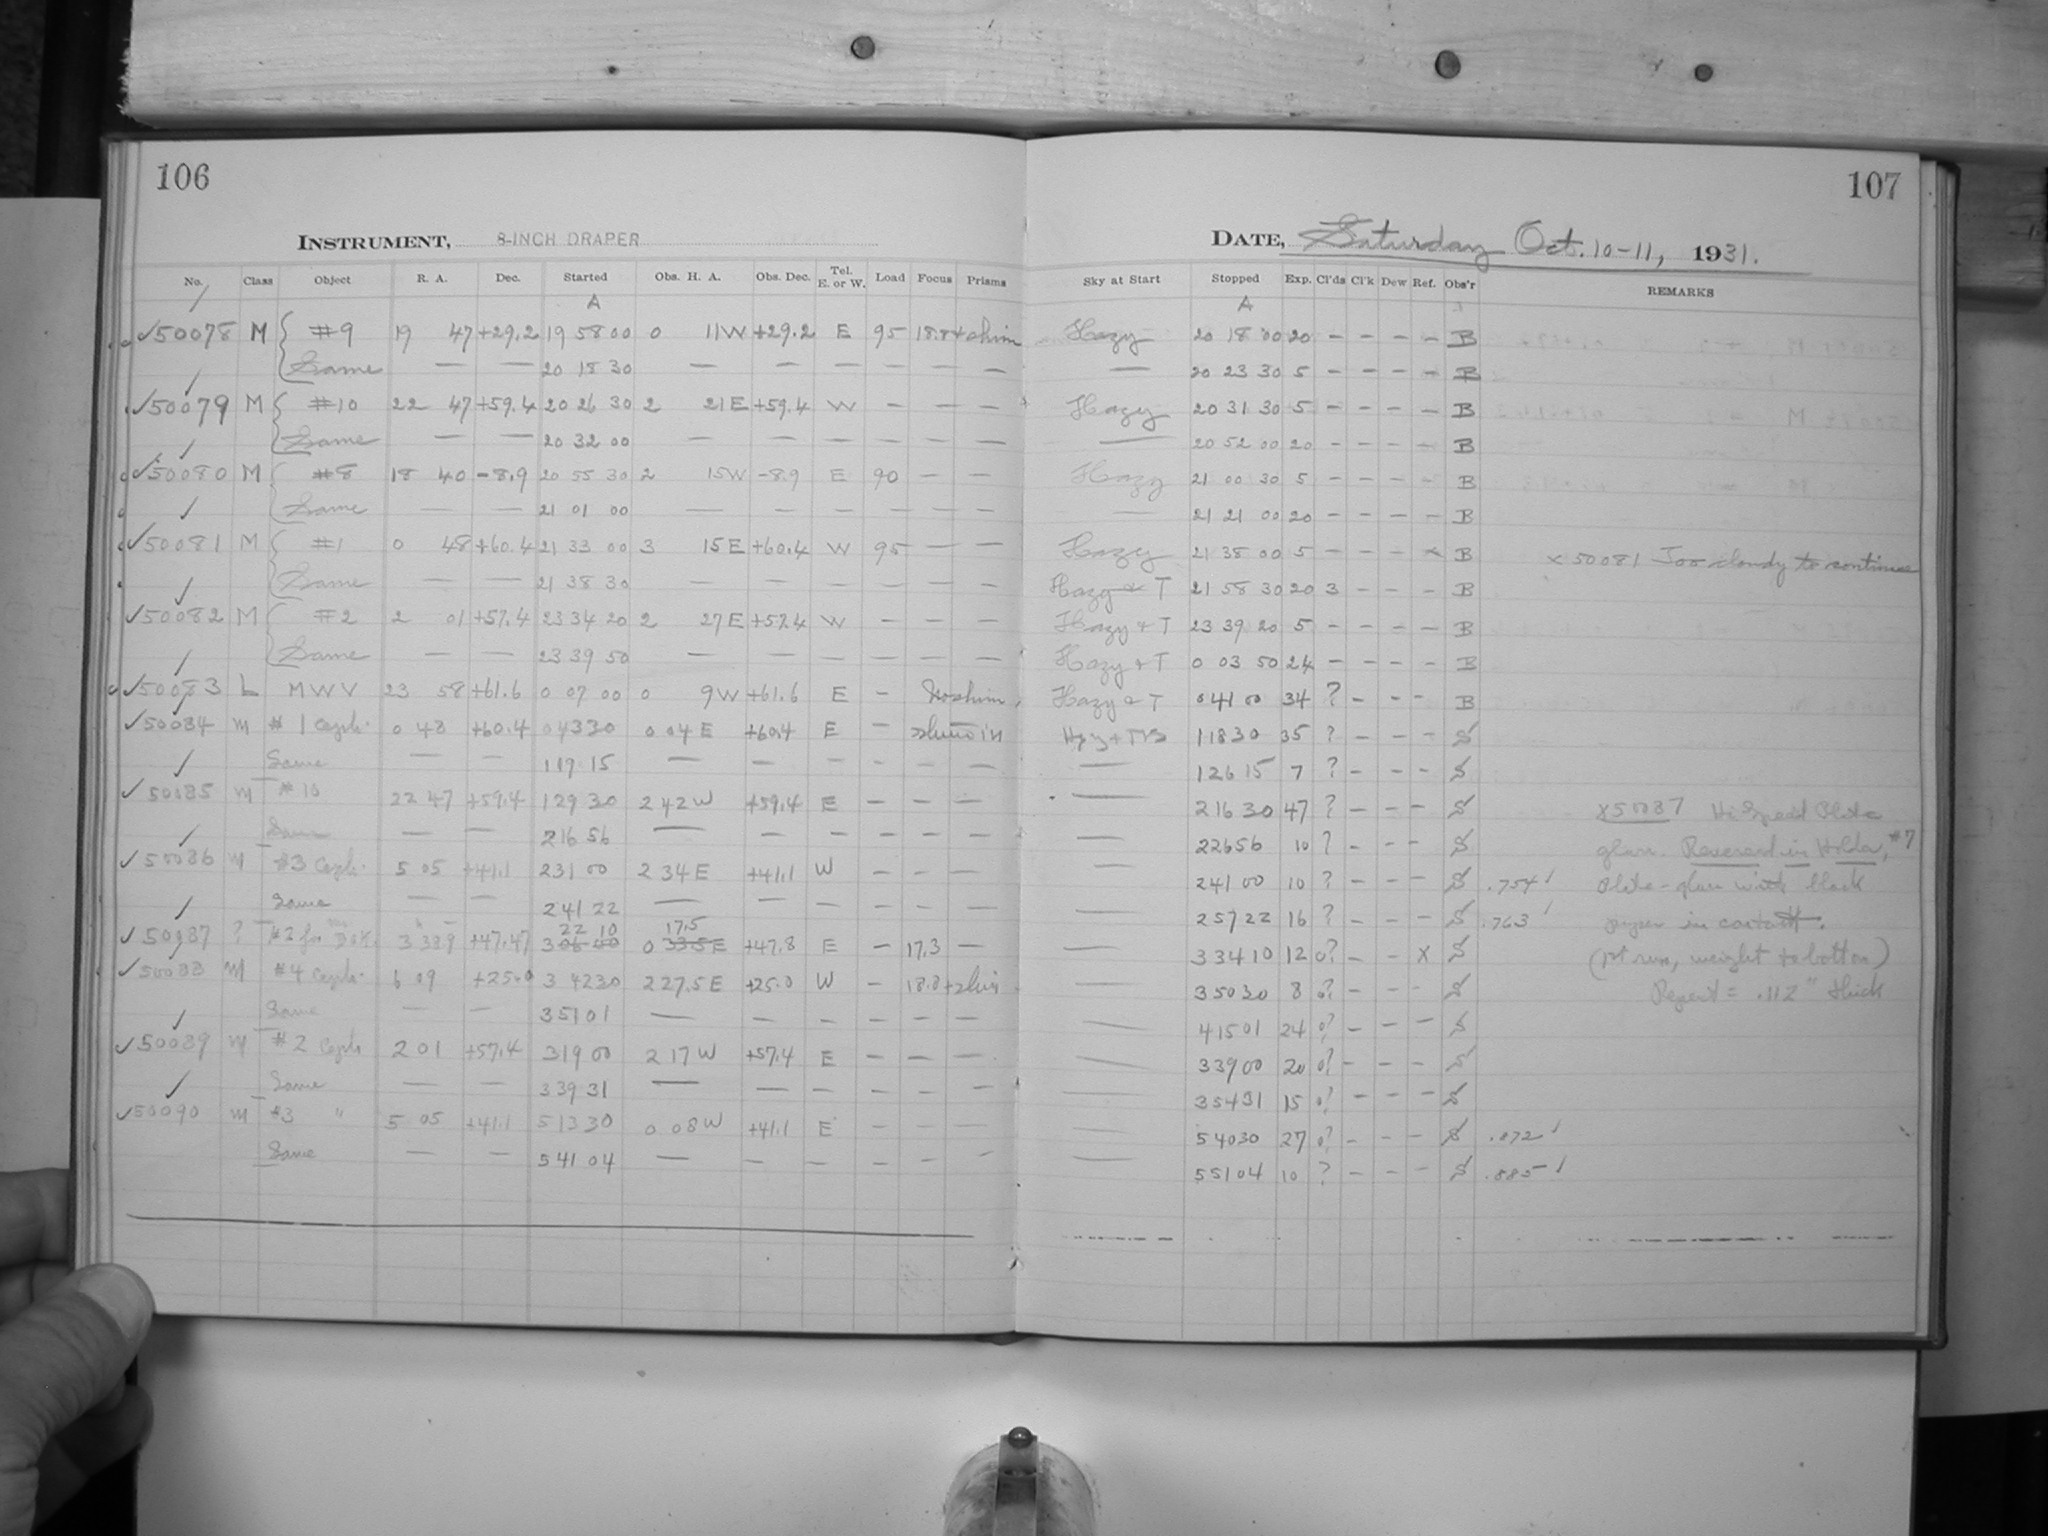 106
INSTRUMENT, 8-INCH DRAPER
No. Class Object R. A. Dec. Started Obs. H. A. Obs. Dec. Tel. E. or W. Load Focus Prisms
A
✓50078 M { #9 19 47 +29.2 19 58 00 0 11W +29.2 E 95 18.8+shim
Same — — 20 18 30 — — — — — —
✓50079 M { #10 22 47 +59.4 20 26 30 2 21E +59.4 W - — —
Same — — 20 32 00 — — — — — —
✓50080 M { #8 18 40 -8.9 20 55 30 2 15W -8.9 E 90 — —
Same — — 21 01 00 — — — — — —
✓50081 M { #1 0 48 +60.4 21 33 00 3 15E +60.4 W 95 — —
Same — — 21 38 30 — — — — — —
✓50082 M { #2 2 01 +57.4 23 34 20 2 27E +57.4 W — — —
Same — — 23 39 50 — — — — — —
✓50083 L MWV 23 58 +61.6 0 07 00 0 9W +61.6 E - No shim
✓50084 M #1 Ceph. 0 48 +60.4 0 43 30 0 04 E +60.4 E — shim in
Same — — 1 19 15 — — — — — —
✓50085 M #10 22 47 +59.4 1 29 30 2 42 W +59.4 E — — —
Same — — 2 16 56 — — — — — —
✓50086 M #3 Ceph. 5 05 +41.1 2 31 00 2 34 E +41.1 W — — —
Same — — 2 41 22 — — — — — —
22 10 17.5
✓50087 ? #2 for 3 38.9 +47.47 3 06 40 0 33.5 E +47.8 E — 17.3 —
✓50088 M #4 Ceph. 6 09 +25.0 3 42 30 2 27.5 E +25.0 W — 18.8+shim
Same — — 3 51 01 — — — — — —
✓50089 M #2 Ceph 2 01 +57.4 3 19 00 2 17 W +57.4 E — — —
Same — — 3 39 31 — — — — — —
✓50090 M #3 " 5 05 +41.1 5 13 30 0 08 W +41.1 E — — —
Same — — 5 41 04 — — — — — —
107
DATE, Saturday Oct. 10-11, 1931.
Sky at Start Stopped Exp. Cl'ds Cl'k Dew Ref. Obs'r REMARKS
A
Hazy 20 18 00 20 - - - - B
— 20 23 30 5 - - - - B
Hazy 20 31 30 5 - - - - B
— 20 52 00 20 - - - - B
Hazy 21 00 30 5 - - - - B
— 21 21 00 20 - - - - B
Hazy 21 38 00 5 - - - x B x 50081 Too cloudy to continue
Hazy & T 21 58 30 20 3 - - - B
Hazy + T 23 39 20 5 - - - - B
Hazy + T 0 03 50 24 - - - - B
Hazy & T 0 41 00 34 ? - - - B
1 18 30 35 ? - - - S
— 1 26 15 7 ? - - - S
— 2 16 30 47 ? - - - S x50087 Hi Speed Plate
— 2 26 56 10 ? - - - S glass. Reversed in Holder, #7
— 2 41 00 10 ? - - - S .754 ✓ Plate-glass with black
— 2 57 22 16 ? - - - S .763 ✓ paper in contact.
— 3 34 10 12 0? - - X S (1st run, weight to bottom)
— 3 50 30 8 0? - - - S = .112" thick
— 4 15 01 24 0? - - - S
— 3 39 00 20 0? - - - S
— 3 54 31 15 0? - - - S
— 5 40 30 27 0? - - - S .872 ✓
— 5 51 04 10 ? - - - S .885 ✓